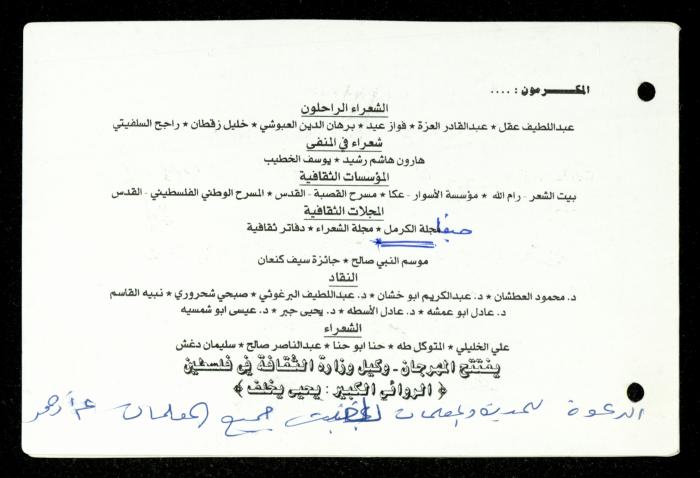 المكـــرمون : ....
الشعراء الراحلون
عبداللطيف عقل * عبدالقادر العزة * فواز عيد * برهان الدين العبوشي * خليل زقطان * راجح السلفيتي
شعراء في المنفى
هارون هاشم رشيد * يوسف الخطيب
المؤسسات الثقافية
بيت الشعر - رام الله * مؤسسة الأسوار - عكا * مسرح القصبة - القدس * المسرح الوطني الفلسطيني - القدس
المجلات الثقافية
مجلة الكرمل * مجلة الشعراء * دفاتر ثقافية
موسم النبي صالح * جائزة سيف كنعان
النقاد
د. محمود العطشان * د. عبدالكريم ابو خشان * د. عبداللطيف البرغوثي * صبحي شحروري * نبيه القاسم
د. عادل ابو عمشه * د. عادل الأسطه * د. يحيى جبر * د. عيسى ابو شمسيه
الشعراء
علي الخليلي * المتوكل طه * حنا ابو حنا * عبدالناصر صالح * سليمان دغش
يفتتح المهرجان - وكيل وزارة الثقافة في فلسطين
﴿ الروائي الكبير : يحيى يخلف ﴾
الدعوة للمديرة والمعلمات جميع المعلمات